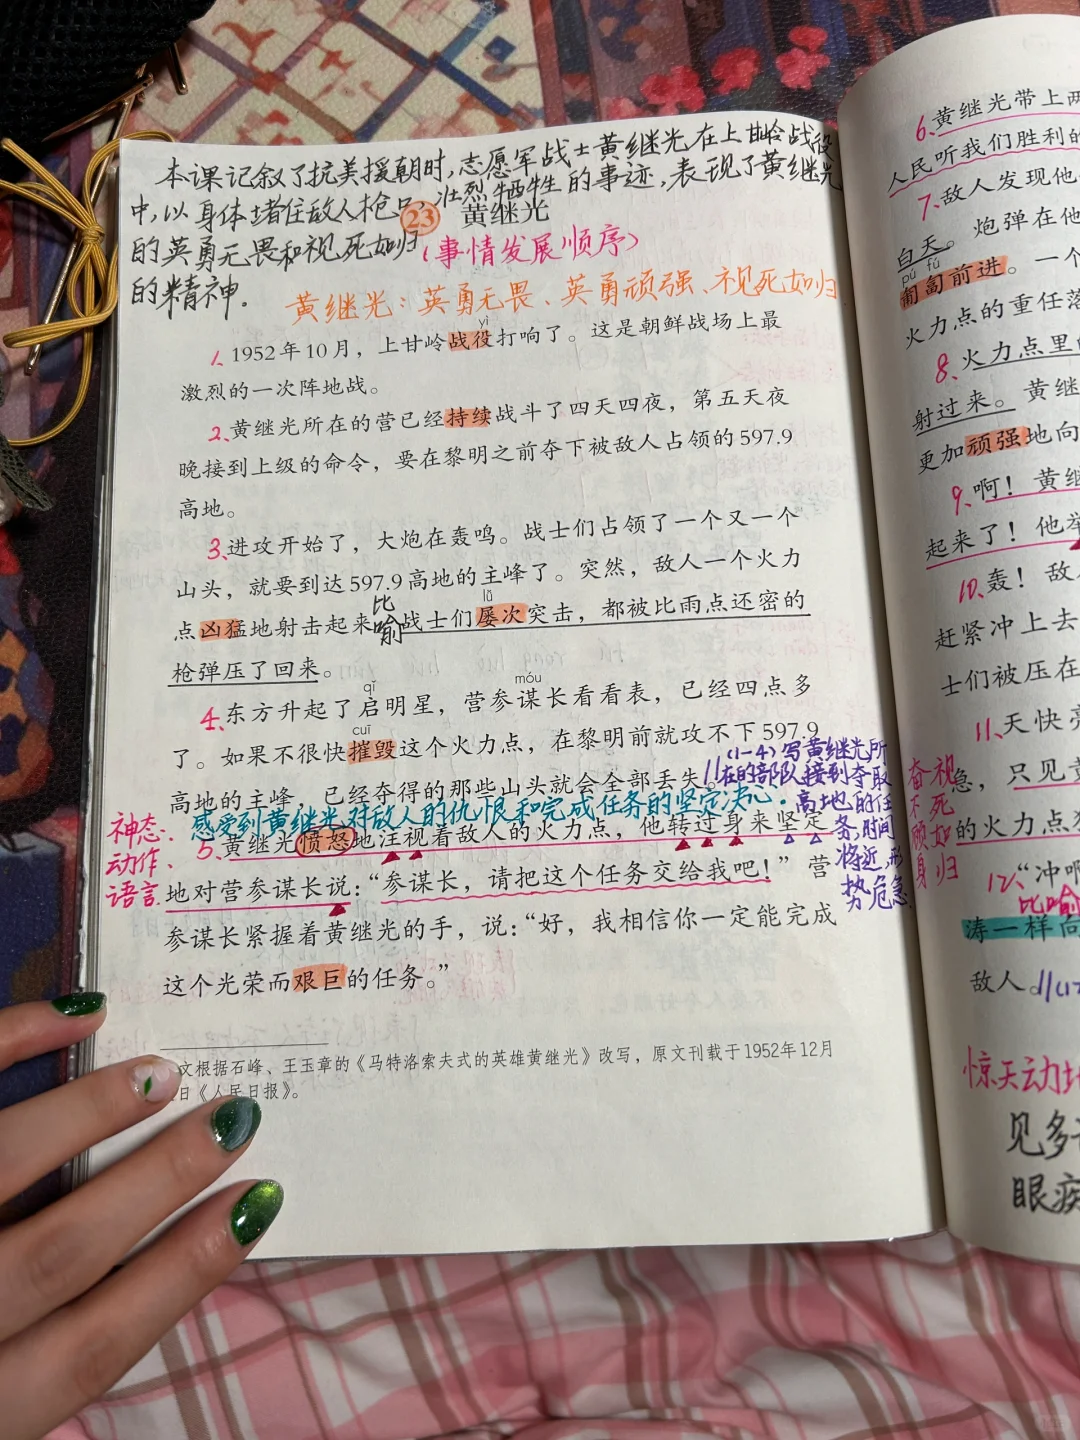 本课记叙了抗美援朝时,志愿军战士黄继光在上甘岭战役
中,以身体堵住敌人枪口,壮烈牺牲的事迹,表现了黄继光
的英勇无畏和视死如归
的精神.
23 黄继光
(事情发展顺序)
黄继光:英勇无畏、英勇顽强、视死如归
yì
1、1952年10月，上甘岭战役打响了。这是朝鲜战场上最
激烈的一次阵地战。
2、黄继光所在的营已经持续战斗了四天四夜，第五天夜
晚接到上级的命令，要在黎明之前夺下被敌人占领的597.9
高地。
3、进攻开始了，大炮在轰鸣。战士们占领了一个又一个
山头，就要到达597.9高地的主峰了。突然，敌人一个火力
比喻
lǚ
点凶猛地射击起来。战士们屡次突击，都被比雨点还密的
枪弹压了回来。
qǐ móu
4、东方升起了启明星，营参谋长看看表，已经四点多
cuī
了。如果不很快摧毁这个火力点，在黎明前就攻不下597.9
高地的主峰，已经夺得的那些山头就会全部丢失。
//(1-4)写黄继光所
在的部队接到夺取
高地的任
务,时间
将近,形
势危急
感受到黄继光对敌人的仇恨和完成任务的坚定决心.
神态、
动作、
语言
5、黄继光愤怒地注视着敌人的火力点，他转过身来坚定
地对营参谋长说：“参谋长，请把这个任务交给我吧！”营
参谋长紧握着黄继光的手，说：“好，我相信你一定能完成
这个光荣而艰巨的任务。”
文根据石峰、王玉章的《马特洛索夫式的英雄黄继光》改写，原文刊载于1952年12月
日《人民日报》。
6、黄继光带上两
人民听我们胜利的
7、敌人发现他
白天。炮弹在他
pú fú
匍匐前进。一个
火力点的重任落
8、火力点里的
射过来。黄继
更加顽强地向
9、啊！黄继
起来了！他举
10、轰！敌
赶紧冲上去
士们被压在
11、天快亮
急，只见黄
的火力点
奋不顾身
视死如归
12、“冲啊
比喻
涛一样向
敌人。//(12
惊天动地
见多
眼疾